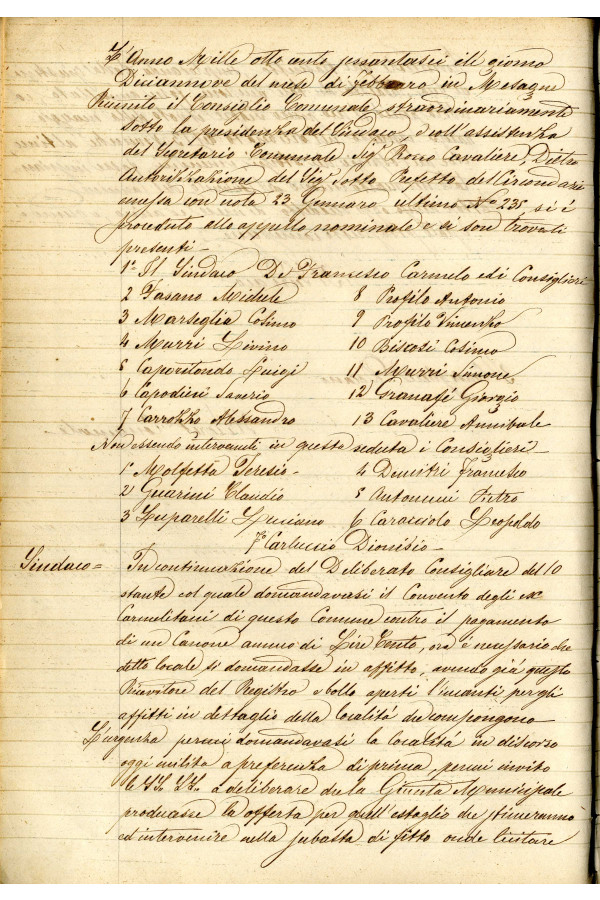 L'Anno Mille otto cento sessantasei il giorno
Diciannove del mese di febbraro in Mesagne
Riunito il Consiglio Comunale straordinariamente
sotto la presidenza del Sindaco, e coll'assistenza
del Segretario Comunale Sigr Rocco Cavaliere, Dietro
Autorizzazione del Sigr Sotto Prefetto del Circondario
emessa con nota 23 Gennaro ultimo No 235 si è
proceduto allo appello nominale e si son trovati
presenti -
1o Il Sindaco De Francesco Carmelo ed i Consiglieri
2 Fasano Michele 8 Profilo Antonio
3 Marseglia Cosimo 9 Profilo Vincenzo
4 Murri Livino 10 Biscosi Cosimo
5 Caperitondo Luigi 11 Murri Simone
6 Capodieci Saverio 12 Granafei Giorgio
7 Carrozzo Alessandro 13 Cavaliere Annibale
Non essendo intervenuti in questa seduta i Consiglieri -
1o Molfetta Teresio - 4 Demitri Francesco
2 Guarini Claudio 5 Antonucci Pietro
3 Luparelli Luciano 6 Caracciolo Leopoldo
7o Carluccio Dionisio -
Sindaco = In continuazione del Deliberato Consigliare del 10
stante col quale domandavasi il Convento degli ex
Carmelitani di questo Comune contro il pagamento
di un Canone annuo di Lire Cento, ora è necessario che
detto locale si domandasse in affitto, avendo già questo
Ricevitore del Registro e bollo aperti l'incanti per gli
affitti in dettaglio della località che compongono
L'urgenza per cui domandavasi la località in discorso
oggi milita a preferenza di prima, per cui invito
le SS. LL. a deliberare che la Giunta Municipale
producasse la offerta per quell'estaglio che stimeranno
ed intervenire nella subasta di fitto onde licitare